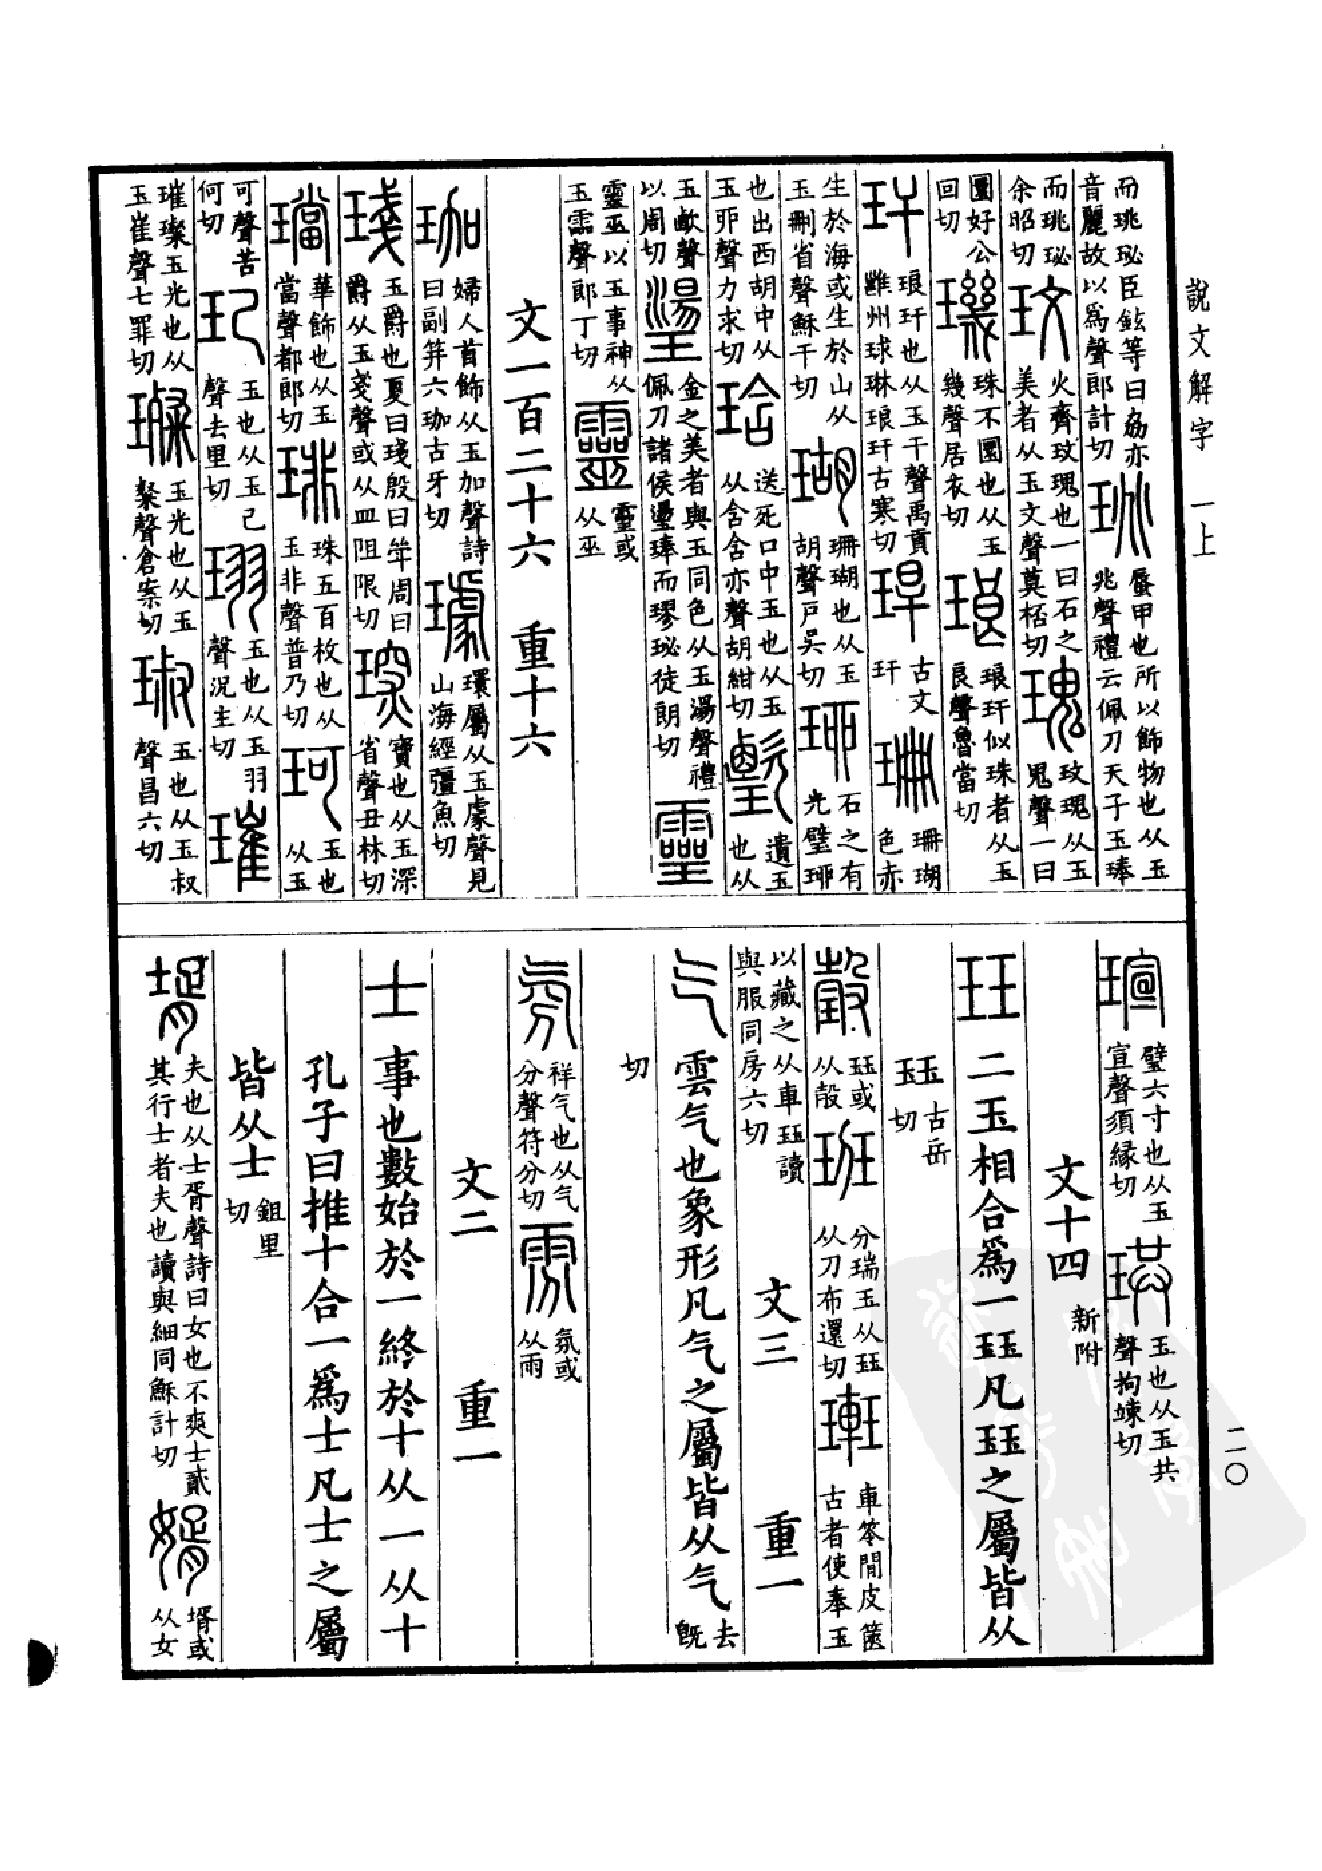 說文解字 一上
二〇
而珧珌臣鉉等曰劦亦音麗故以爲聲郎計切 珧 蜃甲也所以飾物也从玉兆聲禮云佩刀天子玉琫
而珧珌余昭切 玟 火齊玟瑰也一曰石之美者从玉文聲莫桮切 瑰 玟瑰从玉鬼聲一曰
圜好公回切 璣 珠不圜也从玉幾聲居衣切 琅 琅玕似珠者从玉良聲魯當切
玕 琅玕也从玉干聲禹貢雝州球琳琅玕古寒切 𤥚 古文玕 珊 珊瑚色赤
生於海或生於山从玉刪省聲穌干切 瑚 珊瑚也从玉胡聲戶吳切 珋 石之有光璧珋
也出西胡中从玉丣聲力求切 琀 送死口中玉也从玉从含含亦聲胡紺切 𤪌 遺玉也从
玉歋聲以周切 璗 金之美者與玉同色从玉湯聲禮佩刀諸侯璗琫而璆珌徒朗切 𤫊
靈巫以玉事神从玉霝聲郎丁切 靈 𤫊或从巫
文一百二十六 重十六
珈 婦人首飾从玉加聲詩曰副笄六珈古牙切 璩 環屬从玉豦聲見山海經彊魚切
琖 玉爵也夏曰琖殷曰斝周曰爵从玉戔聲或从皿阻限切 琛 寶也从玉深省聲丑林切
璫 華飾也从玉當聲都郎切 琲 珠五百枚也从玉非聲普乃切 珂 玉也从玉
可聲苦何切 玘 玉也从玉己聲去里切 珝 玉也从玉羽聲況主切 璀
璀璨玉光也从玉崔聲七罪切 璨 玉光也从玉粲聲倉案切 琡 玉也从玉叔聲昌六切
瑄 璧六寸也从玉宣聲須緣切 珙 玉也从玉共聲拘竦切
文十四 新附
玨 二玉相合爲一玨凡玨之屬皆从
玨 古岳切
瑴 玨或从㱿 班 分瑞玉从玨从刀布還切 𨌤 車笭閒皮篋古者使奉玉
以藏之从車玨讀與服同房六切 文三 重一
气 雲气也象形凡气之屬皆从气 去旣
切
氛 祥气也从气分聲符分切 雰 氛或从雨
文二 重一
士 事也數始於一終於十从一从十
孔子曰推十合一爲士凡士之屬
皆从士 鉏里切
壻 夫也从士胥聲詩曰女也不爽士貳其行士者夫也讀與細同穌計切 婿 壻或从女